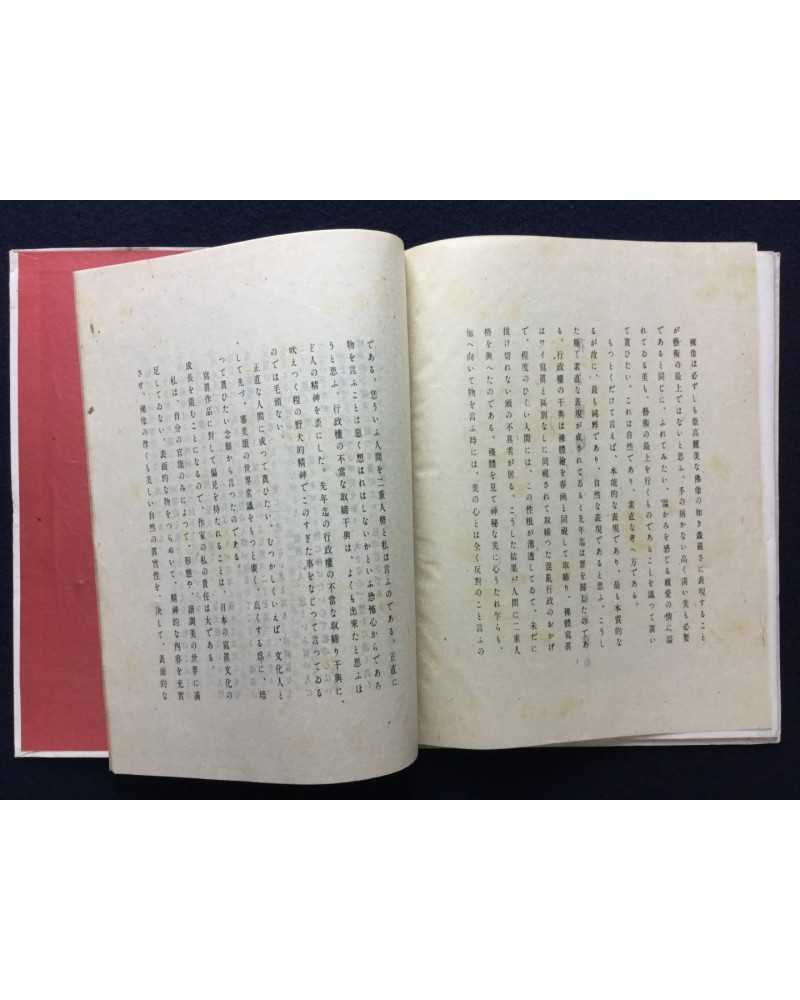 裸像は必ずしも最高麗美な佛像の如き森嚴さに表現すること
が藝術の最上ではないと思ふ。手の届かない高く淸い美も必要
であると同じに、ふれてみたい、溫かみを感じる親愛の情に溢
れてゐる美も、藝術の最上を行くものであることを識つて貰い
て貰ひたい。これは自然であり、素直な考へ方である。
もつとくだけて言えば、本能的な表現であり、最も本質的な
るが故に、最も純粹であり、自然な表現であると思ふ。こうし
た極て素直な表現が成されてゐると先年迄は罪を歸したのであ
る。行政權の干與は裸體繪を春画と同視して取締り、裸體寫眞
はワイ寫眞と區別なしに同視されて取締つた混亂行政のおかげ
で、程度のひくい人間には、この性根が滲透してゐて、未だに
拔け切れない頭の不具者が居る。こうした結果が人間に二重人
格を與へたのである。裸體を見て神秘な美に心うたれ乍らも、
他へ向いて物を言ふ時には、美の心とは全く反對のこと言ふの
である。恁ういふ人間を二重人格と私は言ふのである。正直に
物を言ふことは惡く想はれはしないかといふ恐怖心からであろ
うと思ふ。行政權の不當な取締干與は、よくも出來たと思ふほ
ど人の精神を歪にした。先年迄の行政權の不當な取締り干與に、
吠えつく程の野犬的精神でこのすぎた事をなじつて言つてゐる
のでは毛頭ない。
正直な人間に成つて貰ひたい、むつかしくいえば、文化人と
して先づ、審美眼の世界常識をもつと廣く、高くする爲に、培
つて貰ひたい念願から言つたのである。
寫眞作品に對して偏見を持たれることは、日本の寫眞文化の
成長を阻むことになるので、作家の私の責任は大である。
私は、自分の官能のみによつて、形態や、諧調美の世界に滿
足してゐない。表面的な物をつらぬいて、精神的な内容を充實
させ、裸像の尊くも美しい自然の眞實性を、決して、表面的な